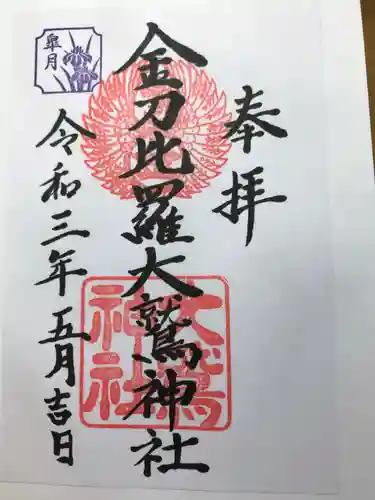 奉拝
金刀比羅大鷲神社
大鷲神社
皐月
令和三年五月吉日